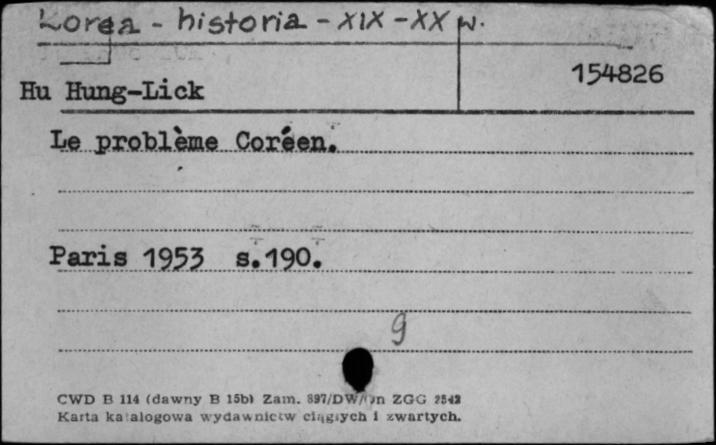 Korea - historia - XIX - XX w.
154826
Hu Hung-Lick
Le problème Coréen.
Paris 1953 s.190.
9
CWD B 114 (dawny B 15b) Zam. 897/DW/ ZGG
Karta katalogowa wydawnictw ciągłych i zwartych.